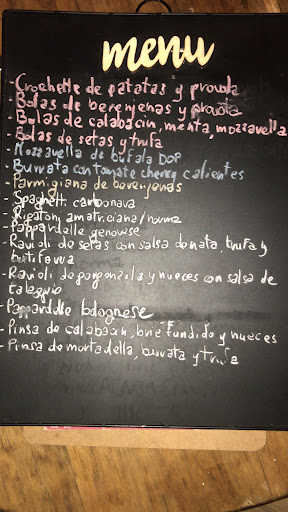 menu
- Crochette de patatas y provola
- Bolas de berenjenas y provola
- Bolas de calabacin, menta, mozzavella
- Bolas de setas y trufa
- Mozzavella de bufala DOP
- Burrata con tomate cherry calientes
- Parmigiana de berenjenas
- Spaghetti carbonava
- Rigatoni amatriciana/norma
- Pappardelle genovese
- Ravioli de setas con salsa de nata, trufa y
butifarra
- Ravioli de gorgonzola y nueces con salsa de
taleggio
- Pappardelle bolognese
- Pinsa de calabacin, brie fundido y nueces
- Pinsa de mortadella, burrata y trufa